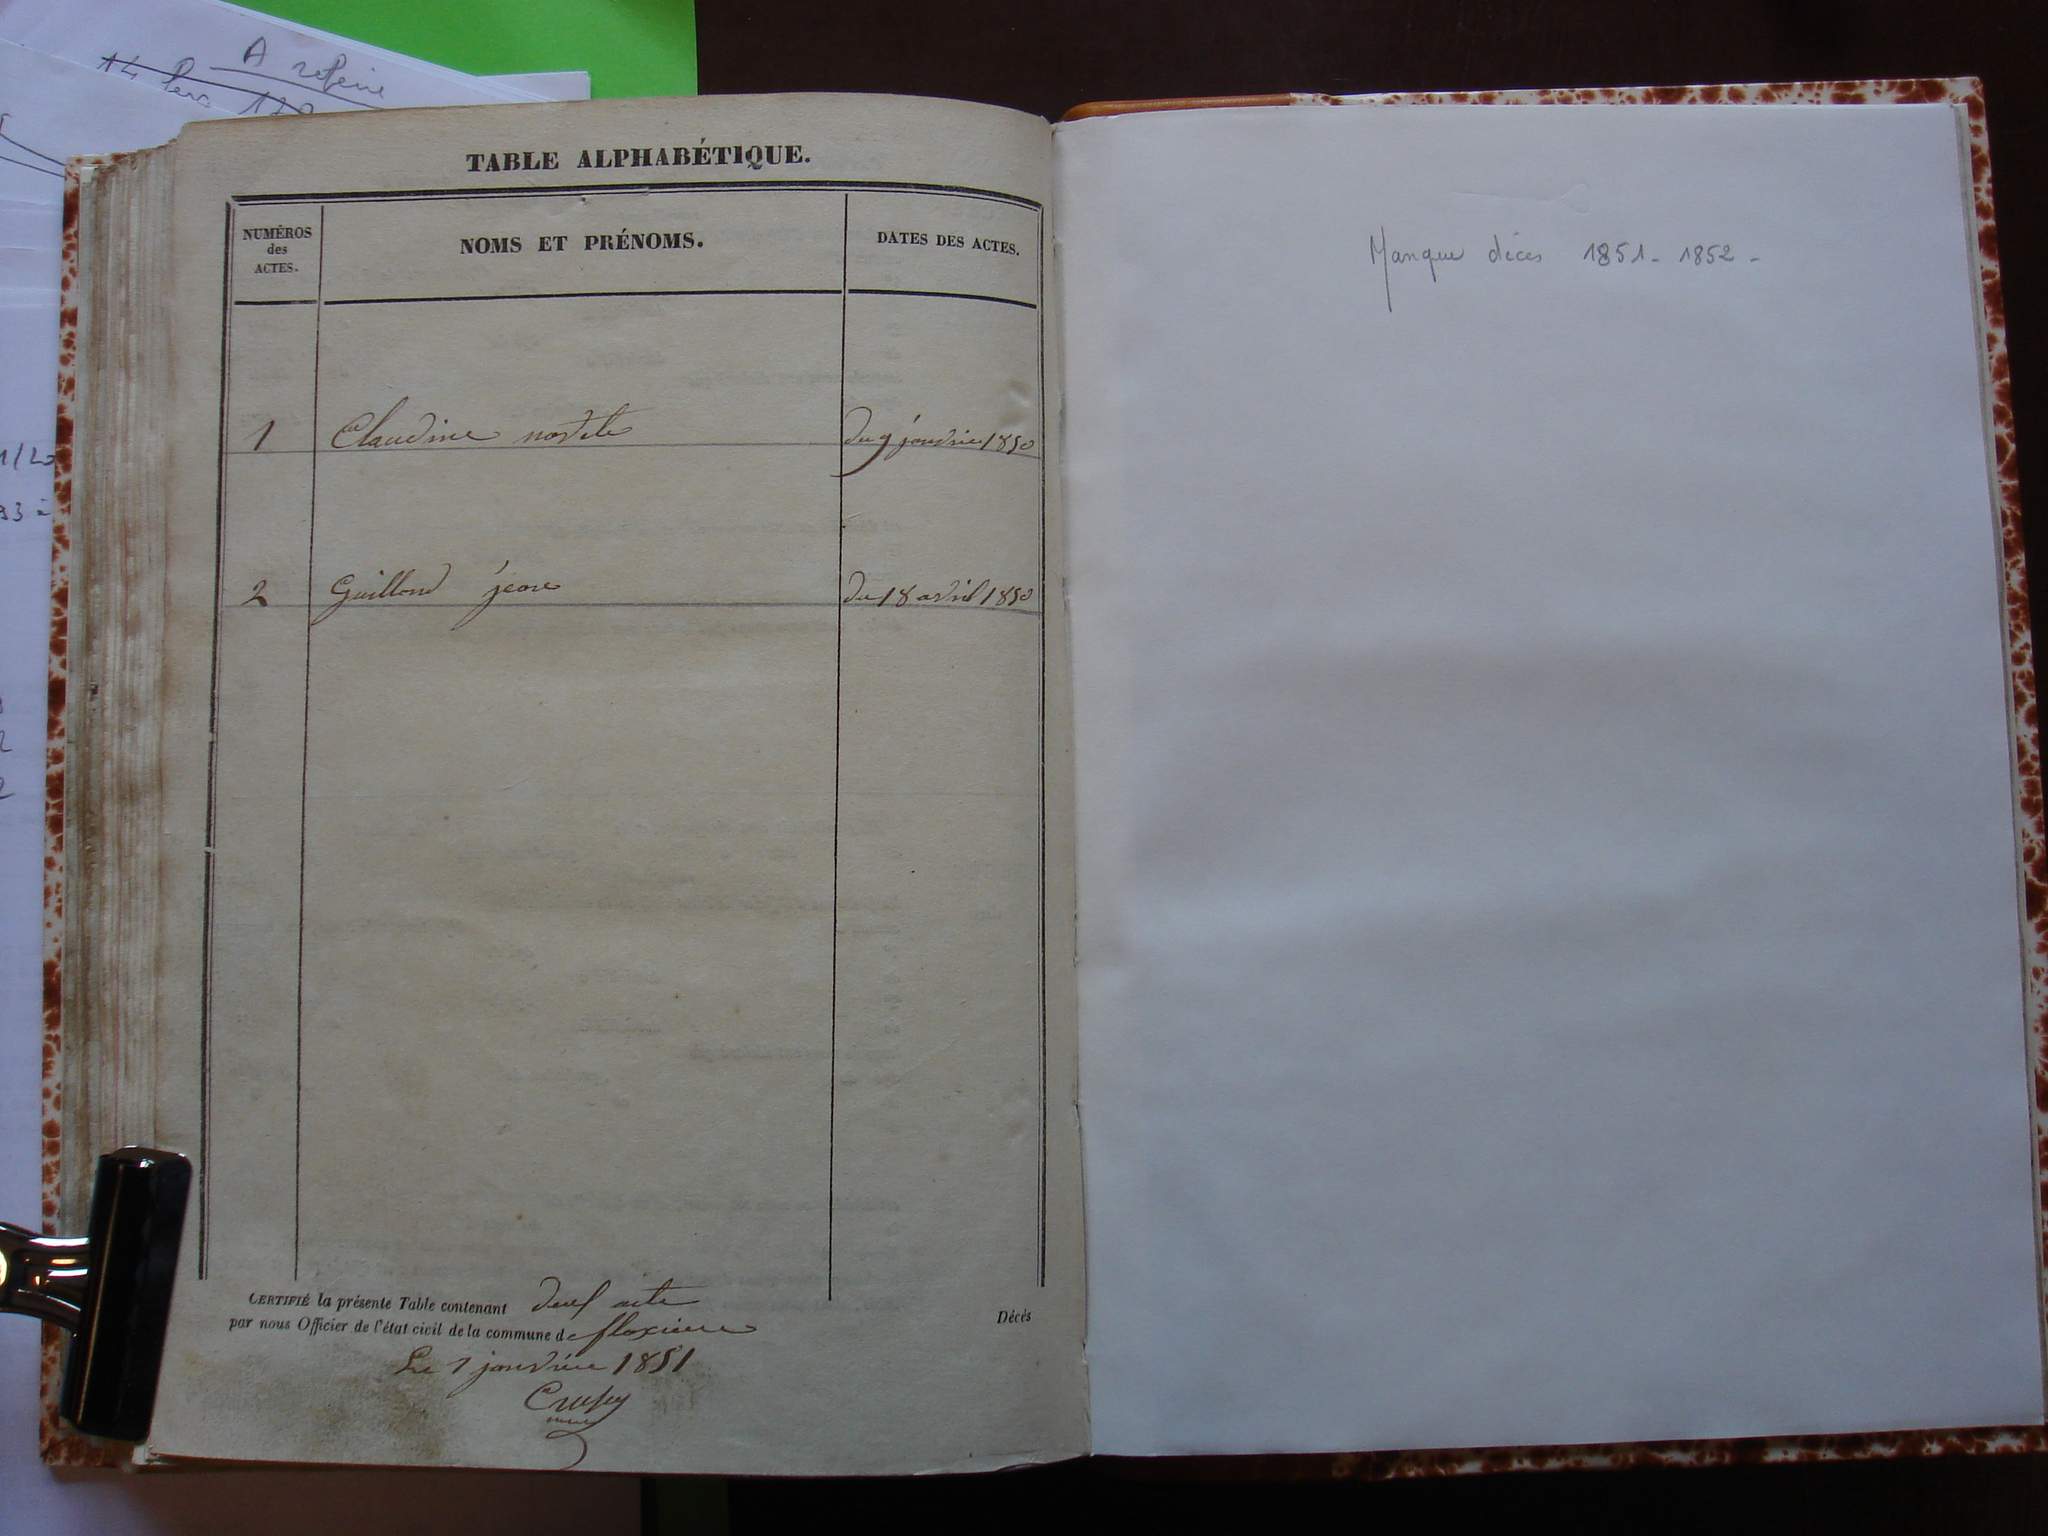 A refaire
14
TABLE ALPHABÉTIQUE.
NUMÉROS
des
ACTES.
NOMS ET PRÉNOMS.
DATES DES ACTES.
1 Claudine nordete du 9 jandvier 1850
2 Guillond jean du 18 avril 1850
CERTIFIÉ la présente Table contenant deux acte Décès
par nous Officier de l'état civil de la commune de floxieu
Le 1 jandvier 1851
Manque décès 1851 - 1852 -
1/20
93 à